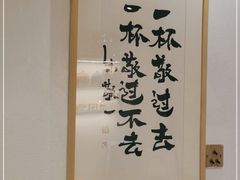 一杯敬过去
一杯敬过不去